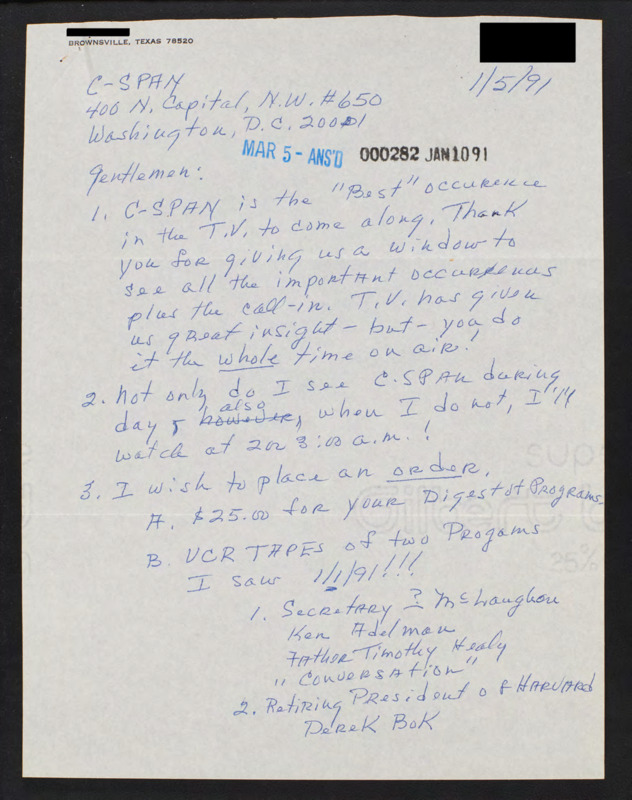 BROWNSVILLE, TEXAS 78520
1/5/91
C-SPAN
400 N. Capital, N.W. #650
Washington, D.C. 20001
MAR 5 - ANS'D 000282 JAN 10 91
Gentlemen:
1. C-SPAN is the "Best" occurence
in the T.V. to come along. Thank
you for giving us a window to
see all the important occurrences
plus the call-in. T.V. has given
us great insight - but - you do
it the whole time on air!
2. Not only do I see C-SPAN during
also
day, however, when I do not, I'll
watch at 2 or 3:00 a.m.!
3. I wish to place an order.
A. $25.00 for your Digest of Programs
B. VCR TAPES of two Progams
I saw 1/1/91!!!
1. Secretary ? McLaughon
Ken Adelman
Father Timothy Healy
"Conversation"
2. Retiring President of HARVARD
Derek Bok